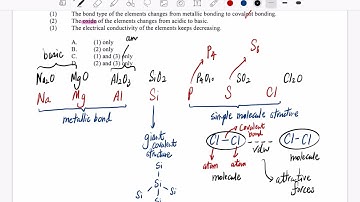 (1) The bond type of the elements changes from metallic bonding to covalent bonding.
(2) The oxide of the elements changes from acidic to basic.
(3) The electrical conductivity of the elements keeps decreasing.
A. (1) only
B. (2) only
C. (1) and (3) only
D. (2) and (3) only
basic am P4 S8
Na2O MgO Al2O3 SiO2 P4O10 SO2 Cl2O
Na Mg Al Si P S Cl
metallic bond simple molecule structure
giant covalent structure
Covalent bond
Cl-Cl Cl-Cl
vdw
atom atom molecule
molecule attractive forces
Si
Si
Si Si